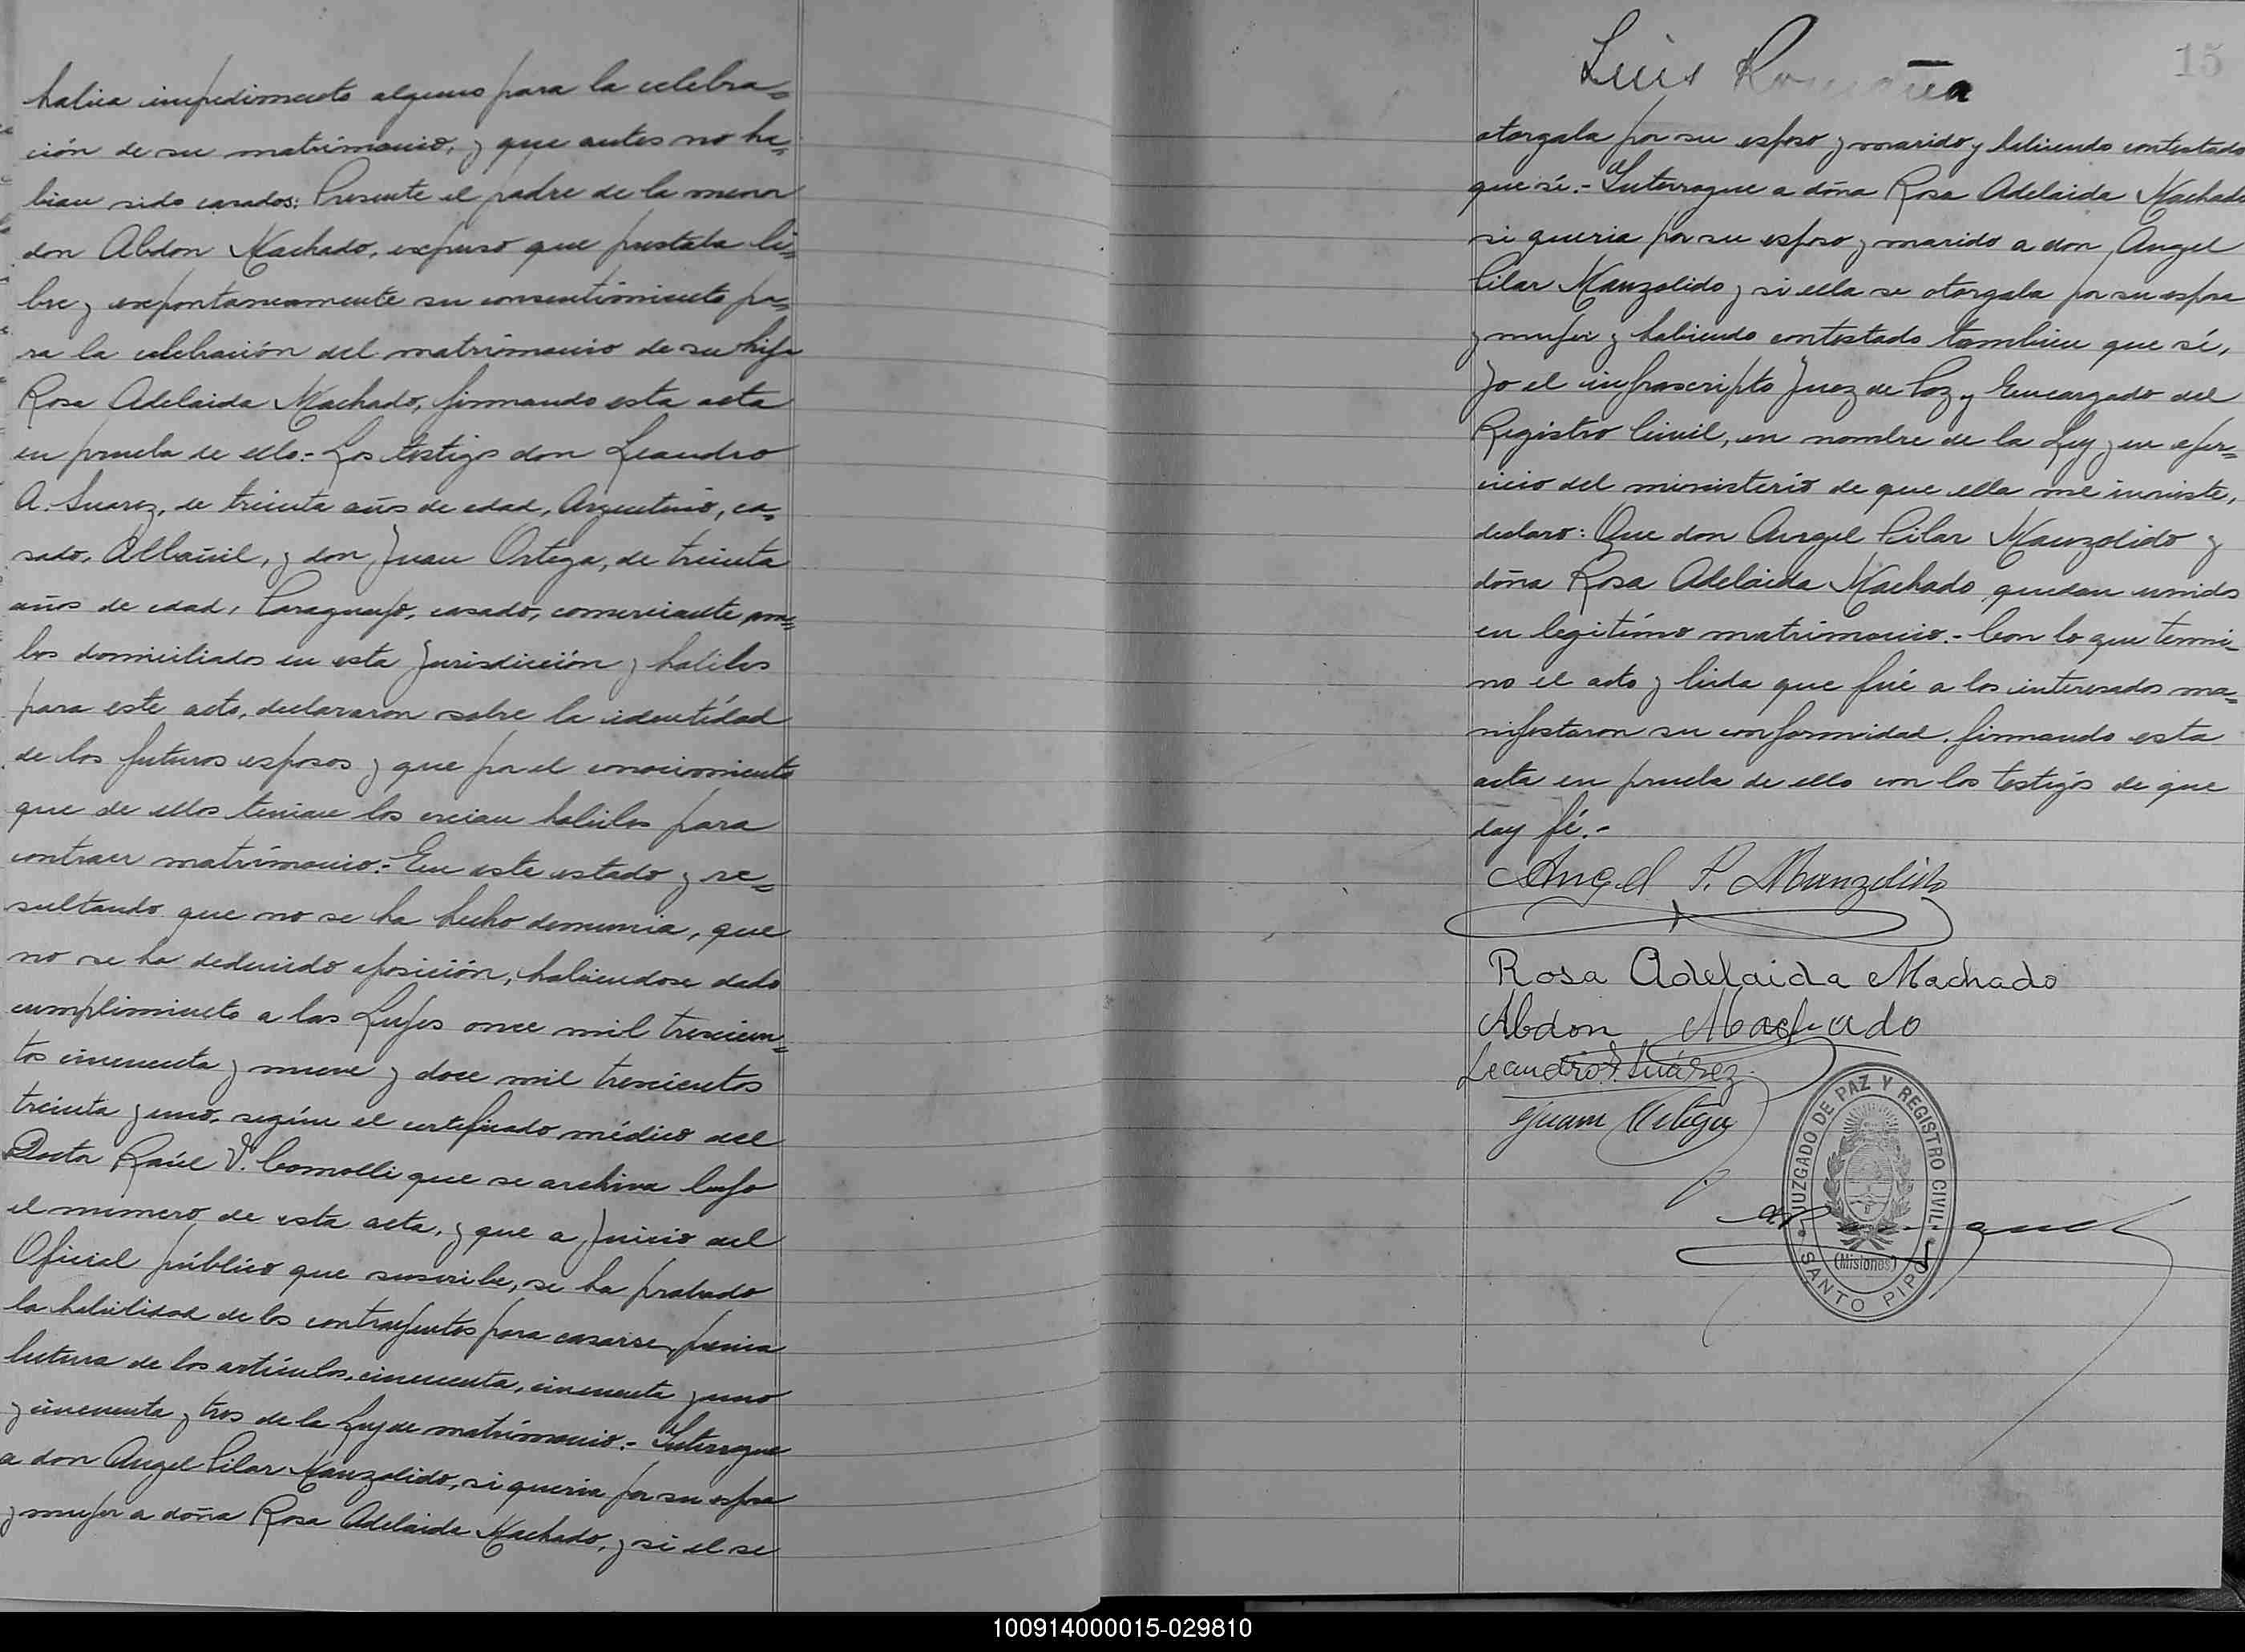 habia impedimento alguno para la celebra=
ción de su matrimonio, y que antes no ha=
bian sido casados: Presente el padre de la menor
don Abdon Machado, expuso que prestaba li=
bre y expontaneamente su consentimiento pa=
ra la celebración del matrimonio de su hija
Rosa Adelaida Machado, firmando esta acta
en prueba de ello.- Los testigos don Leandro
A. Suarez, de treinta años de edad, Argentino, ca=
sado, Albañil, y don Juan Ortega, de treinta
años de edad, Paraguayo, casado, comerciante am=
bos domiciliados en esta Jurisdicción y habiles
para este acto, declararon sobre la identidad
de los futuros esposos y que por el conocimiento
que de ellos tenian los creian habiles para
contraer matrimonio.- En este estado y re=
sultando que no se ha hecho denuncia, que
no se ha deducido oposición, habiendose dado
cumplimiento a las Leyes once mil trescien=
tos cincuenta y nueve y doce mil trescientos
treinta y uno, según el certificado médico del
Doctor Raúl V. Comolli que se archiva bajo
el numero de esta acta, y que a Juicio del
Oficial público que suscribe, se ha probado
la habilidad de los contrayentes para casarse, previa
lectura de los artículos, cincuenta, cincuenta y uno
y cincuenta y tres de la Ley de matrimonio.- Interrogue
a don Angel Pilar Manzolido, si queria por su esposa
y mujer a doña Rosa Adelaida Machado, y si el se
15
Luis Romaña
otorgaba por su esposo y marido y habiendo contestado
que sí.- Interrogue a doña Rosa Adelaida Machado
si queria por su esposo y marido a don Angel
Pilar Manzolido y si ella se otorgaba por su esposa
y mujer y habiendo contestado tambien que sí,
Yo el infrascripto Juez de Paz y Encargado del
Registro Civil, en nombre de la Ley y en ejer=
cicio del ministerio de que ella me inviste,
declaro: Que don Angel Pilar Manzolido y
doña Rosa Adelaida Machado quedan unidos
en legitimo matrimonio.- Con lo que termi=
no el acto y leida que fué a los interesados ma=
nifestaron su conformidad, firmando esta
acta en prueba de ello con los testigos de que
doy fé.-
Angel P. Manzolido
Rosa Adelaida Machado
Abdon Machado
Leandro A. Suárez
Juan Ortega
JUZGADO DE PAZ Y REGISTRO CIVIL
(Misiones)
SANTO PIPO
100914000015-029810